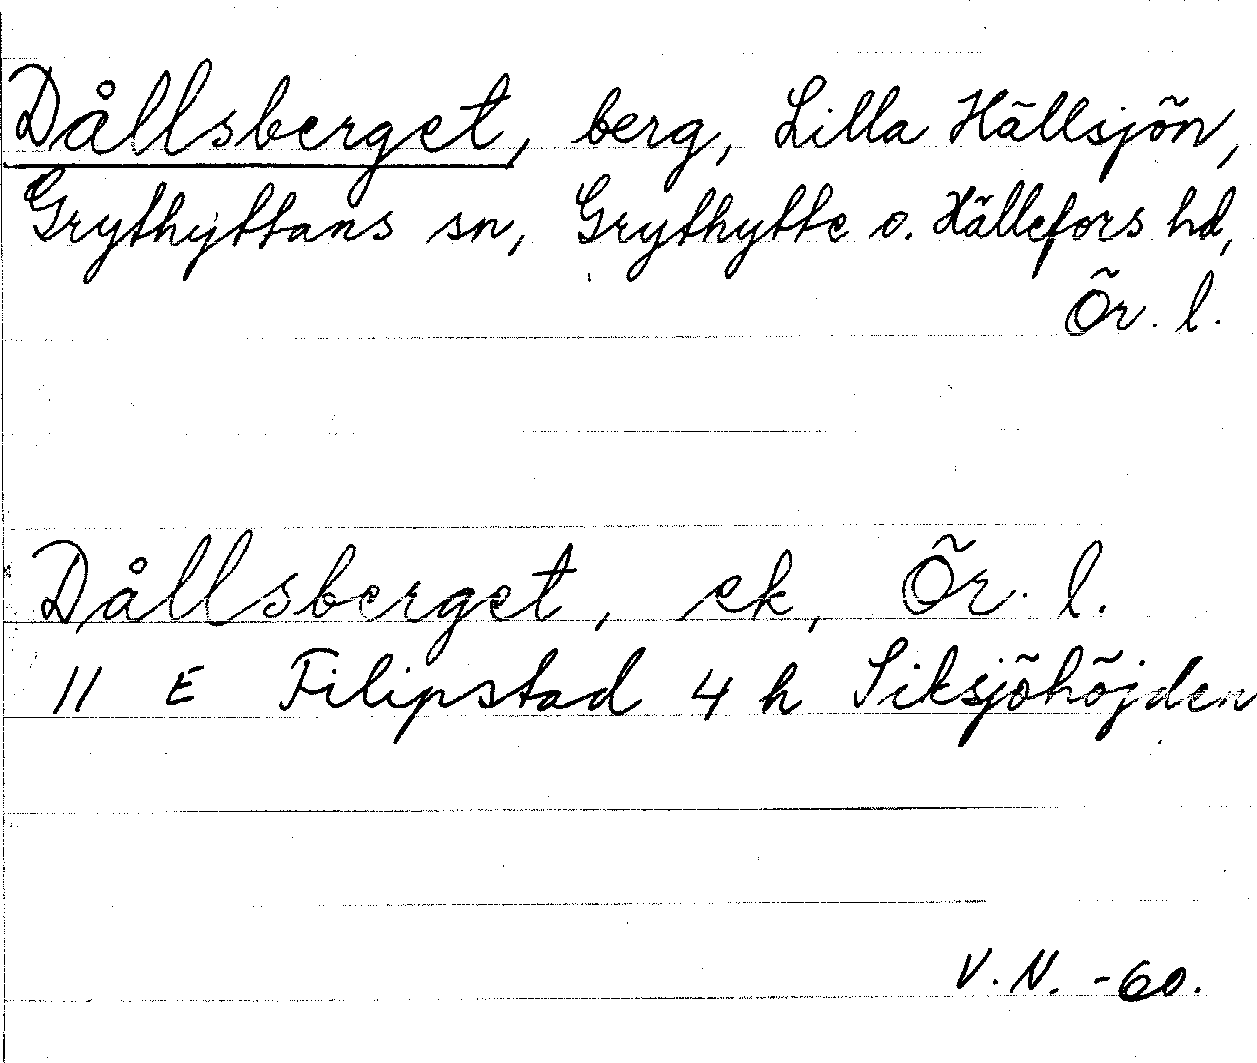 Dållsberget, berg, Lilla Hällsjön,
Grythyttans sn, Grythytte o. Hällefors hd,
Ör. l.
Dållsberget, ek, Ör. l.
11 E Filipstad 4 h Siksjöhöjden
V. N. -60.